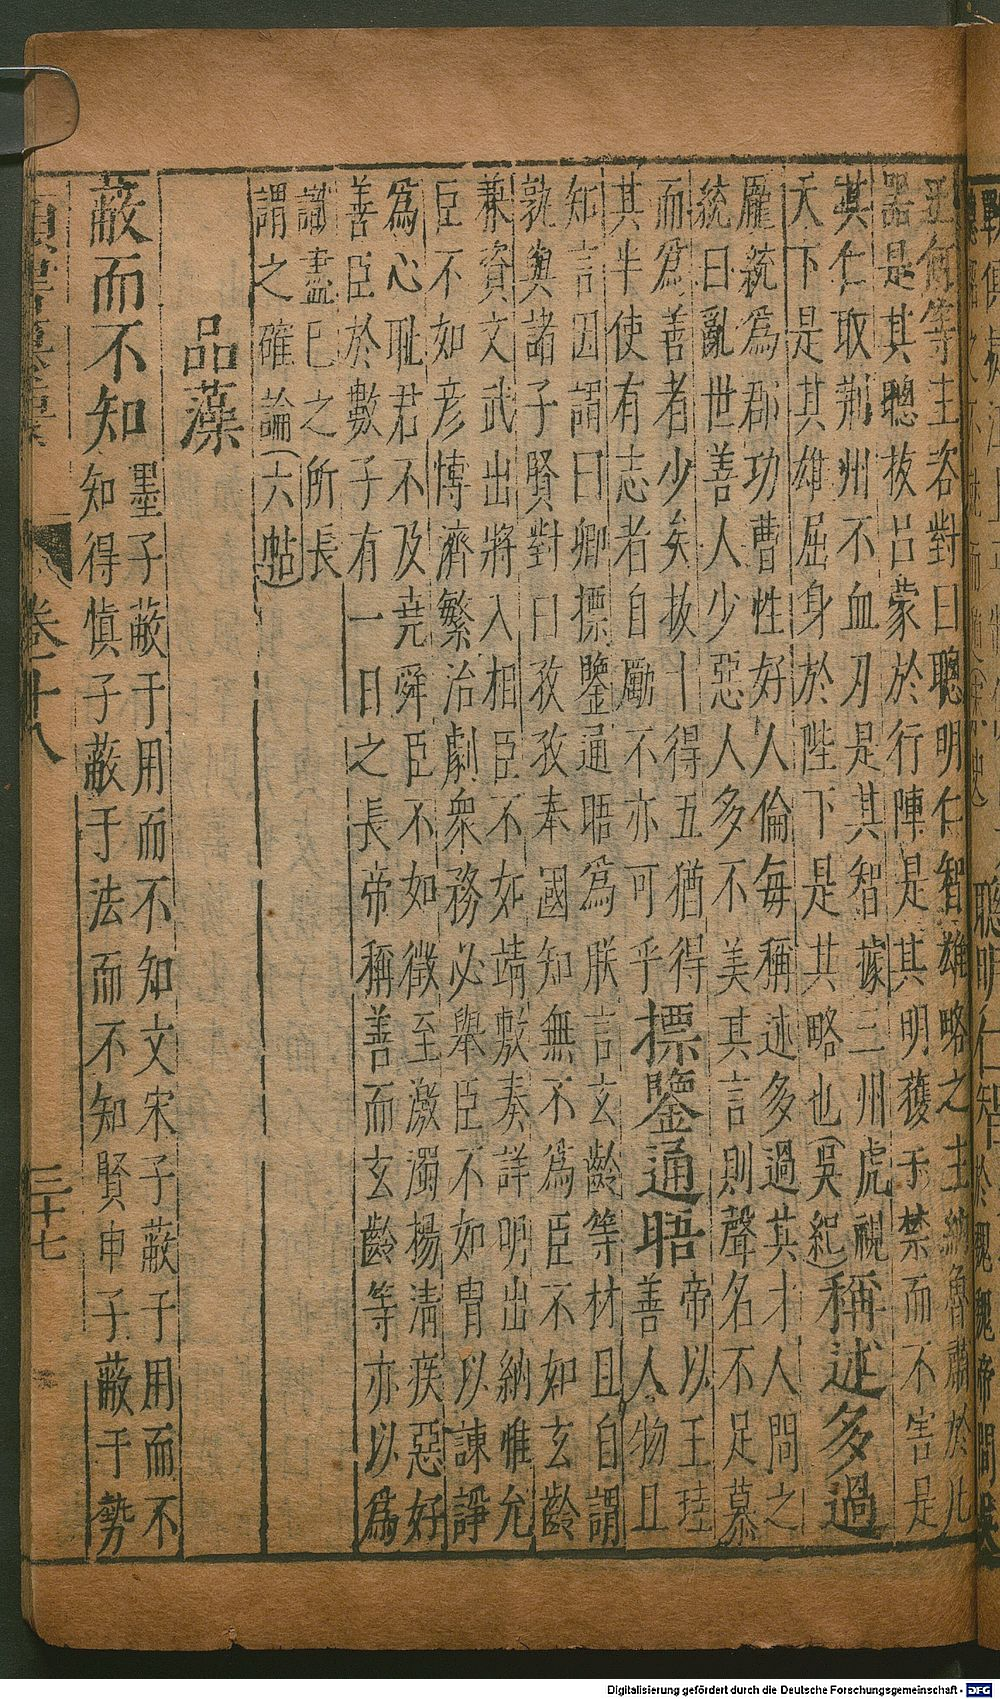 聰明仁智
於魏魏帝問
王何等主咨對曰聰明仁智雄略之主納魯肅於凡
器是其聰拔呂蒙於行陣是其明獲于禁而不害是
其仁取荊州不血刃是其智據三州虎視
天下是其雄屈身於陛下是其略也(吳紀)
稱述多過
龐統爲郡功曹性好人倫每稱述多過其才人問之
統曰亂世善人少惡人多不美其言則聲名不足慕
而爲善者少矣拔十得五猶得
其半使有志者自勵不亦可乎
標鑒通晤
帝以王珪
善人物且
知言因謂曰卿摽鑒通晤爲朕言玄齡等材且自謂
孰與諸子賢對曰孜孜奉國知無不爲臣不如玄齡
兼資文武出將入相臣不如靖敷奏詳明出納惟允
臣不如彥博濟繁治劇衆務必舉臣不如冑以諫諍
爲心耻君不及堯舜臣不如徵至激濁楊清疾惡好
善臣於數子有一日之長帝稱善而玄齡等亦以爲
識盡已之所長
謂之確論(六帖)
品藻
蔽而不知
墨子蔽于用而不知文宋子蔽于用而不
知得愼子蔽于法而不知賢申子蔽于勢
卷十八
三十七
Digitalisierung gefördert durch die Deutsche Forschungsgemeinschaft - DFG